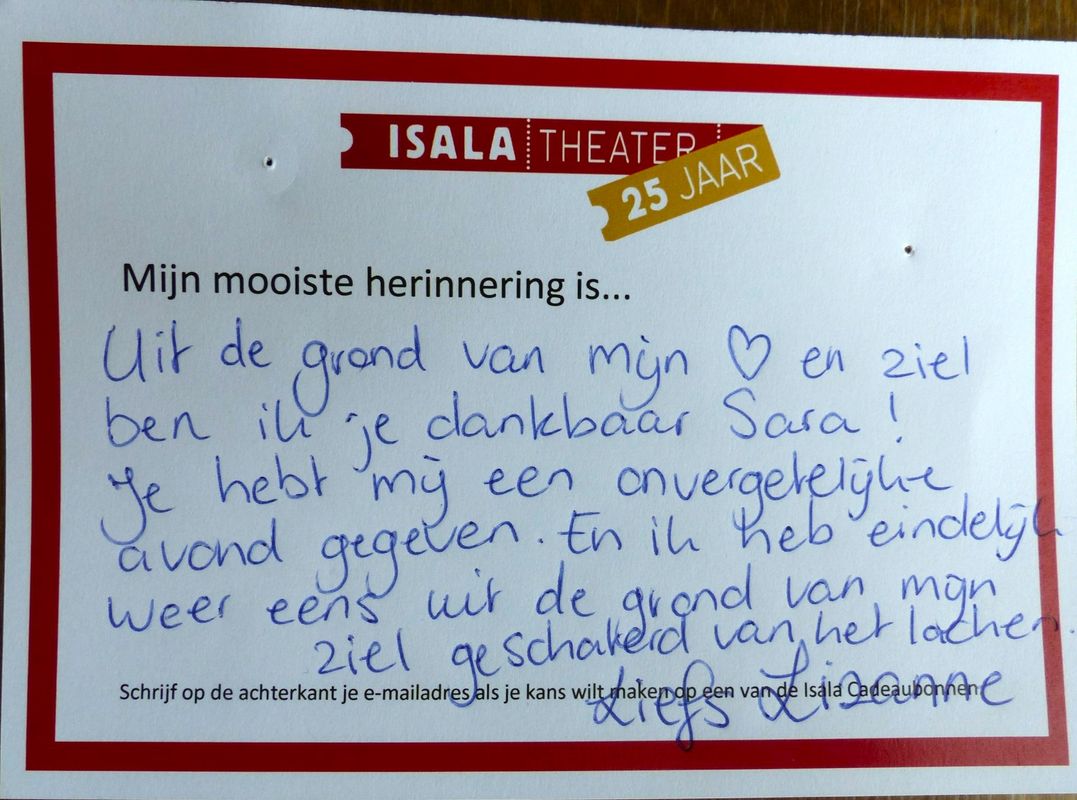 ISALA THEATER
25 JAAR
Mijn mooiste herinnering is...
Uit de grond van mijn ♡ en ziel
ben ik je dankbaar Sara!
Je hebt mij een onvergetelijke
avond gegeven. En ik heb eindelijk
weer eens uit de grond van mijn
ziel geschaterd van het lachen.
Schrijf op de achterkant je e-mailadres als je kans wilt maken op een van de Isala Cadeaubonnen.
Liefs Lizanne